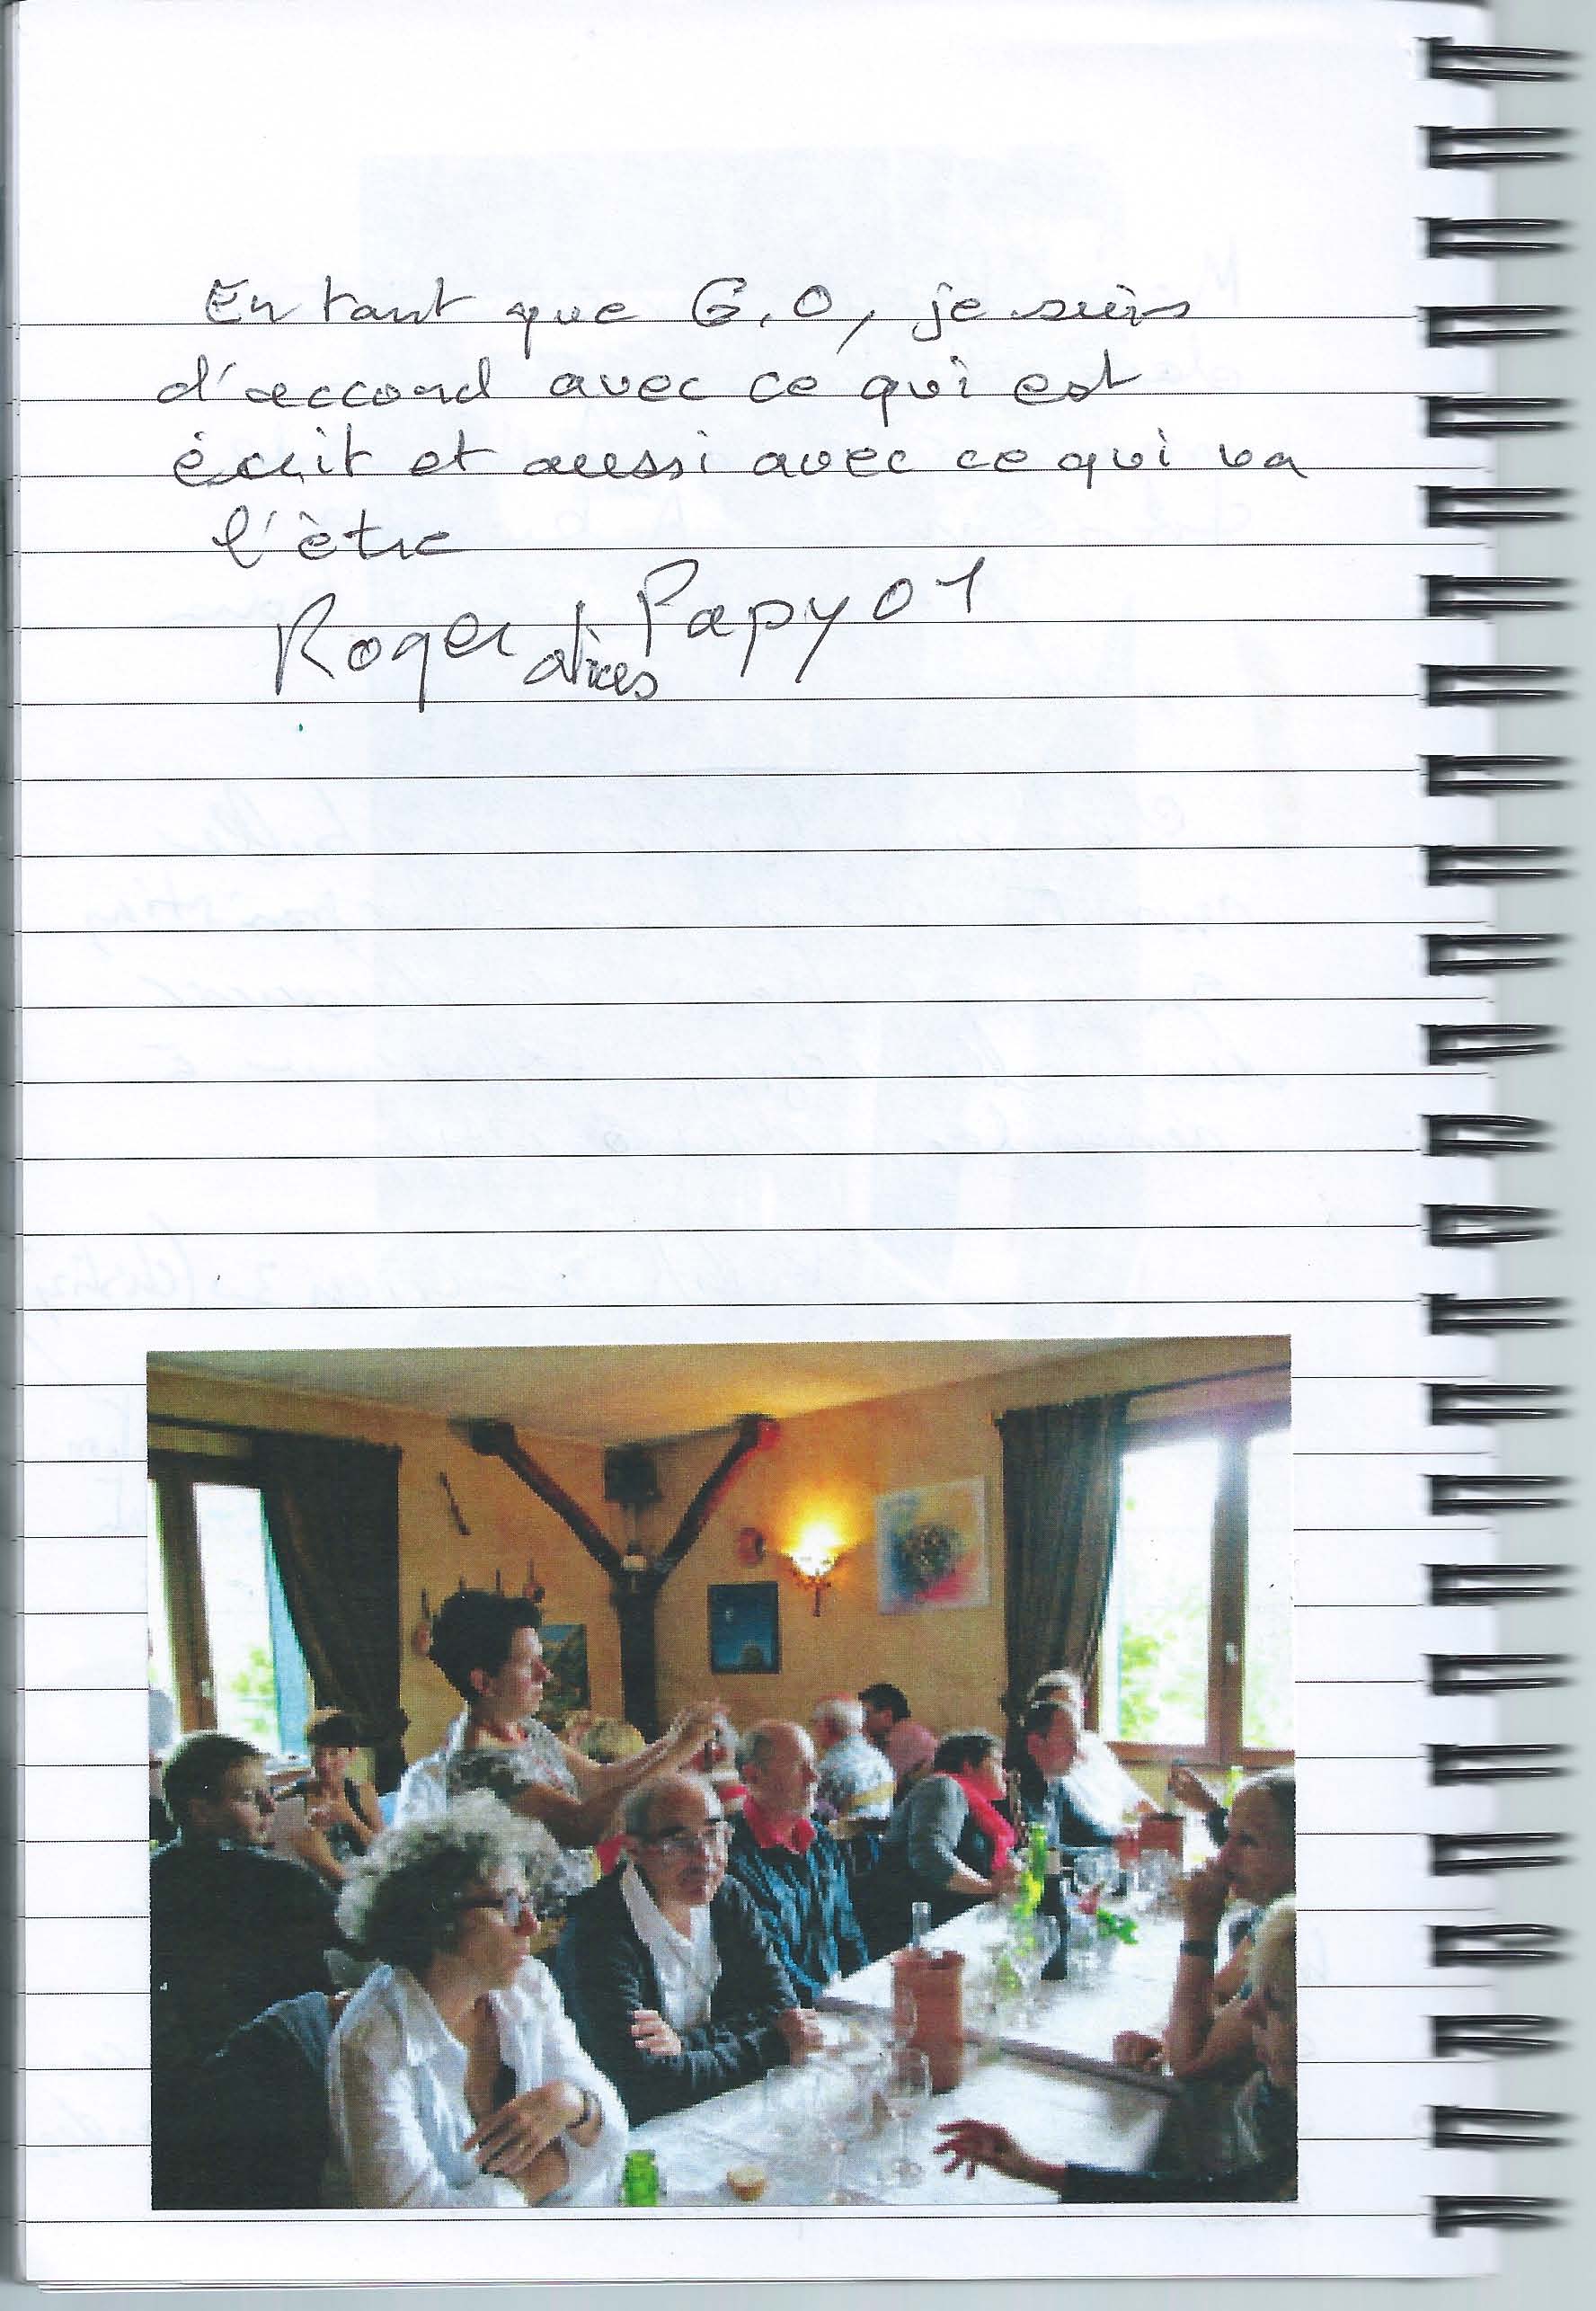 En tant que G.O, je suis
d'accord avec ce qui est
écrit et aussi avec ce qui va
l'être
Roger dices Papy 01